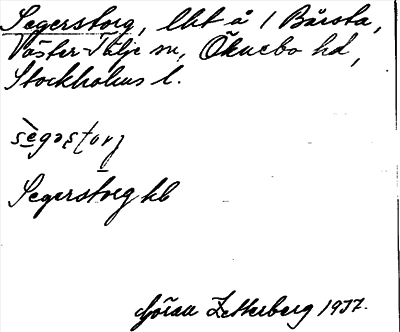 Segerstorg, lht å 1 Bårsta,
Väster-Tälje sn, Öknebo hd,
Stockholms l.
Segerstorg kb
Göran Zetterberg 1937.